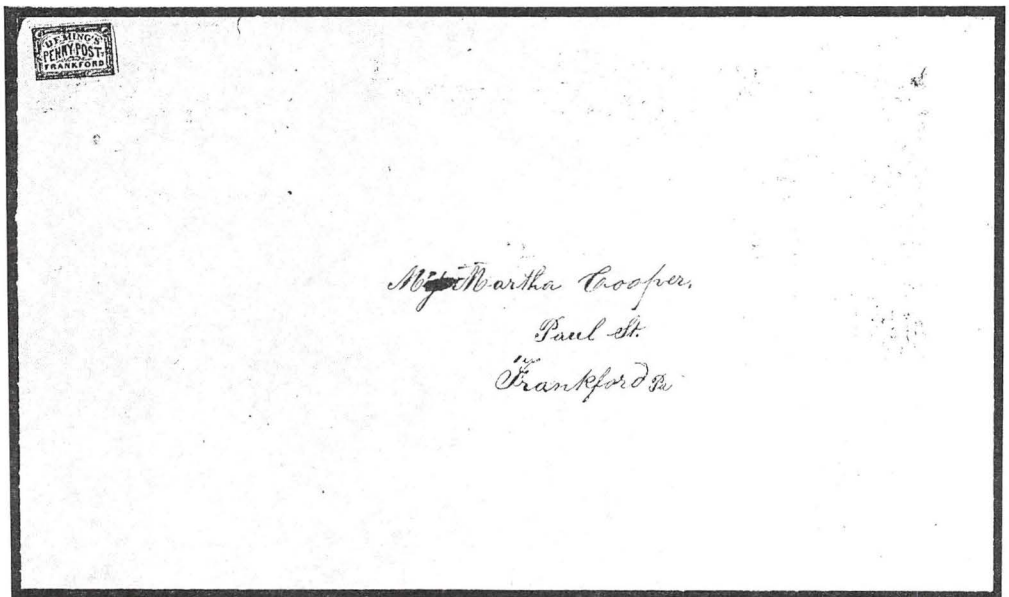 DEMING'S
PENNY-POST,
FRANKFORD
Martha Cooper,
Paul St.
Frankford Pa